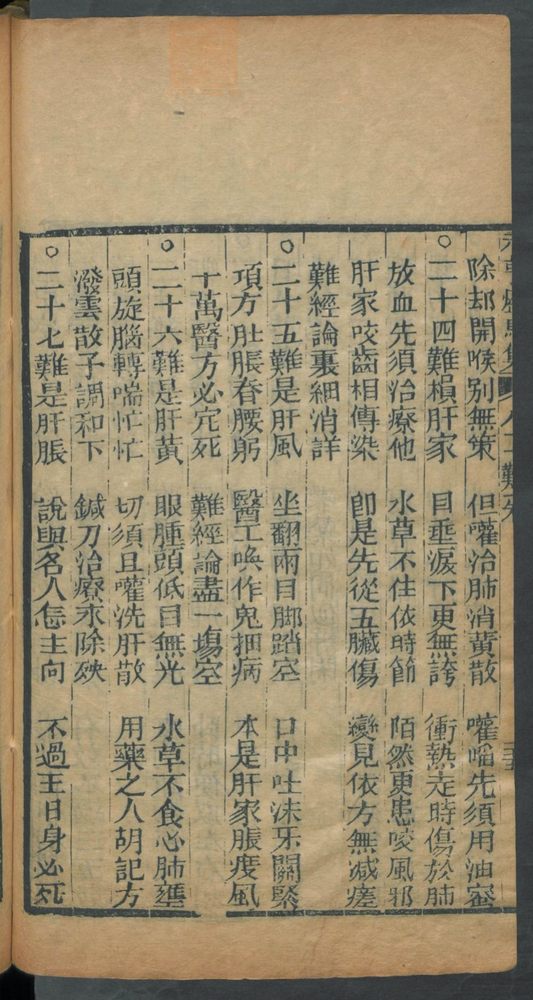 除却開喉别無策　但嚾治肺消黄散　嚾啗先須用油蜜
○二十四難槓肝家　目垂淚下更無誇　衝熱走時傷於肺
放血先須治療他　水草不住依時節　陌然更患唆風邪
肝家咬齒相傳染　卽是先從五臟傷　變見依方無減瘥
難經論裏細消詳
○二十五難是肝風　坐翻兩目脚踏空　口中吐沫牙關緊
項方肚脹脊腰躬　醫工喚作鬼捆病　本是肝家脹疫風
千萬醫方必宂死　難經論盡一塲空
○二十六難是肝黄　眼腫頭低目無光　水草不食心肺壅
頭旋腦轉喘忙忙　切須且嚾洗肝散　用藥之人胡記方
潑雲散子調和下　鍼刀治療永除殃
○二十七難是肝脹　說與名人怎主向　不過王日身必死